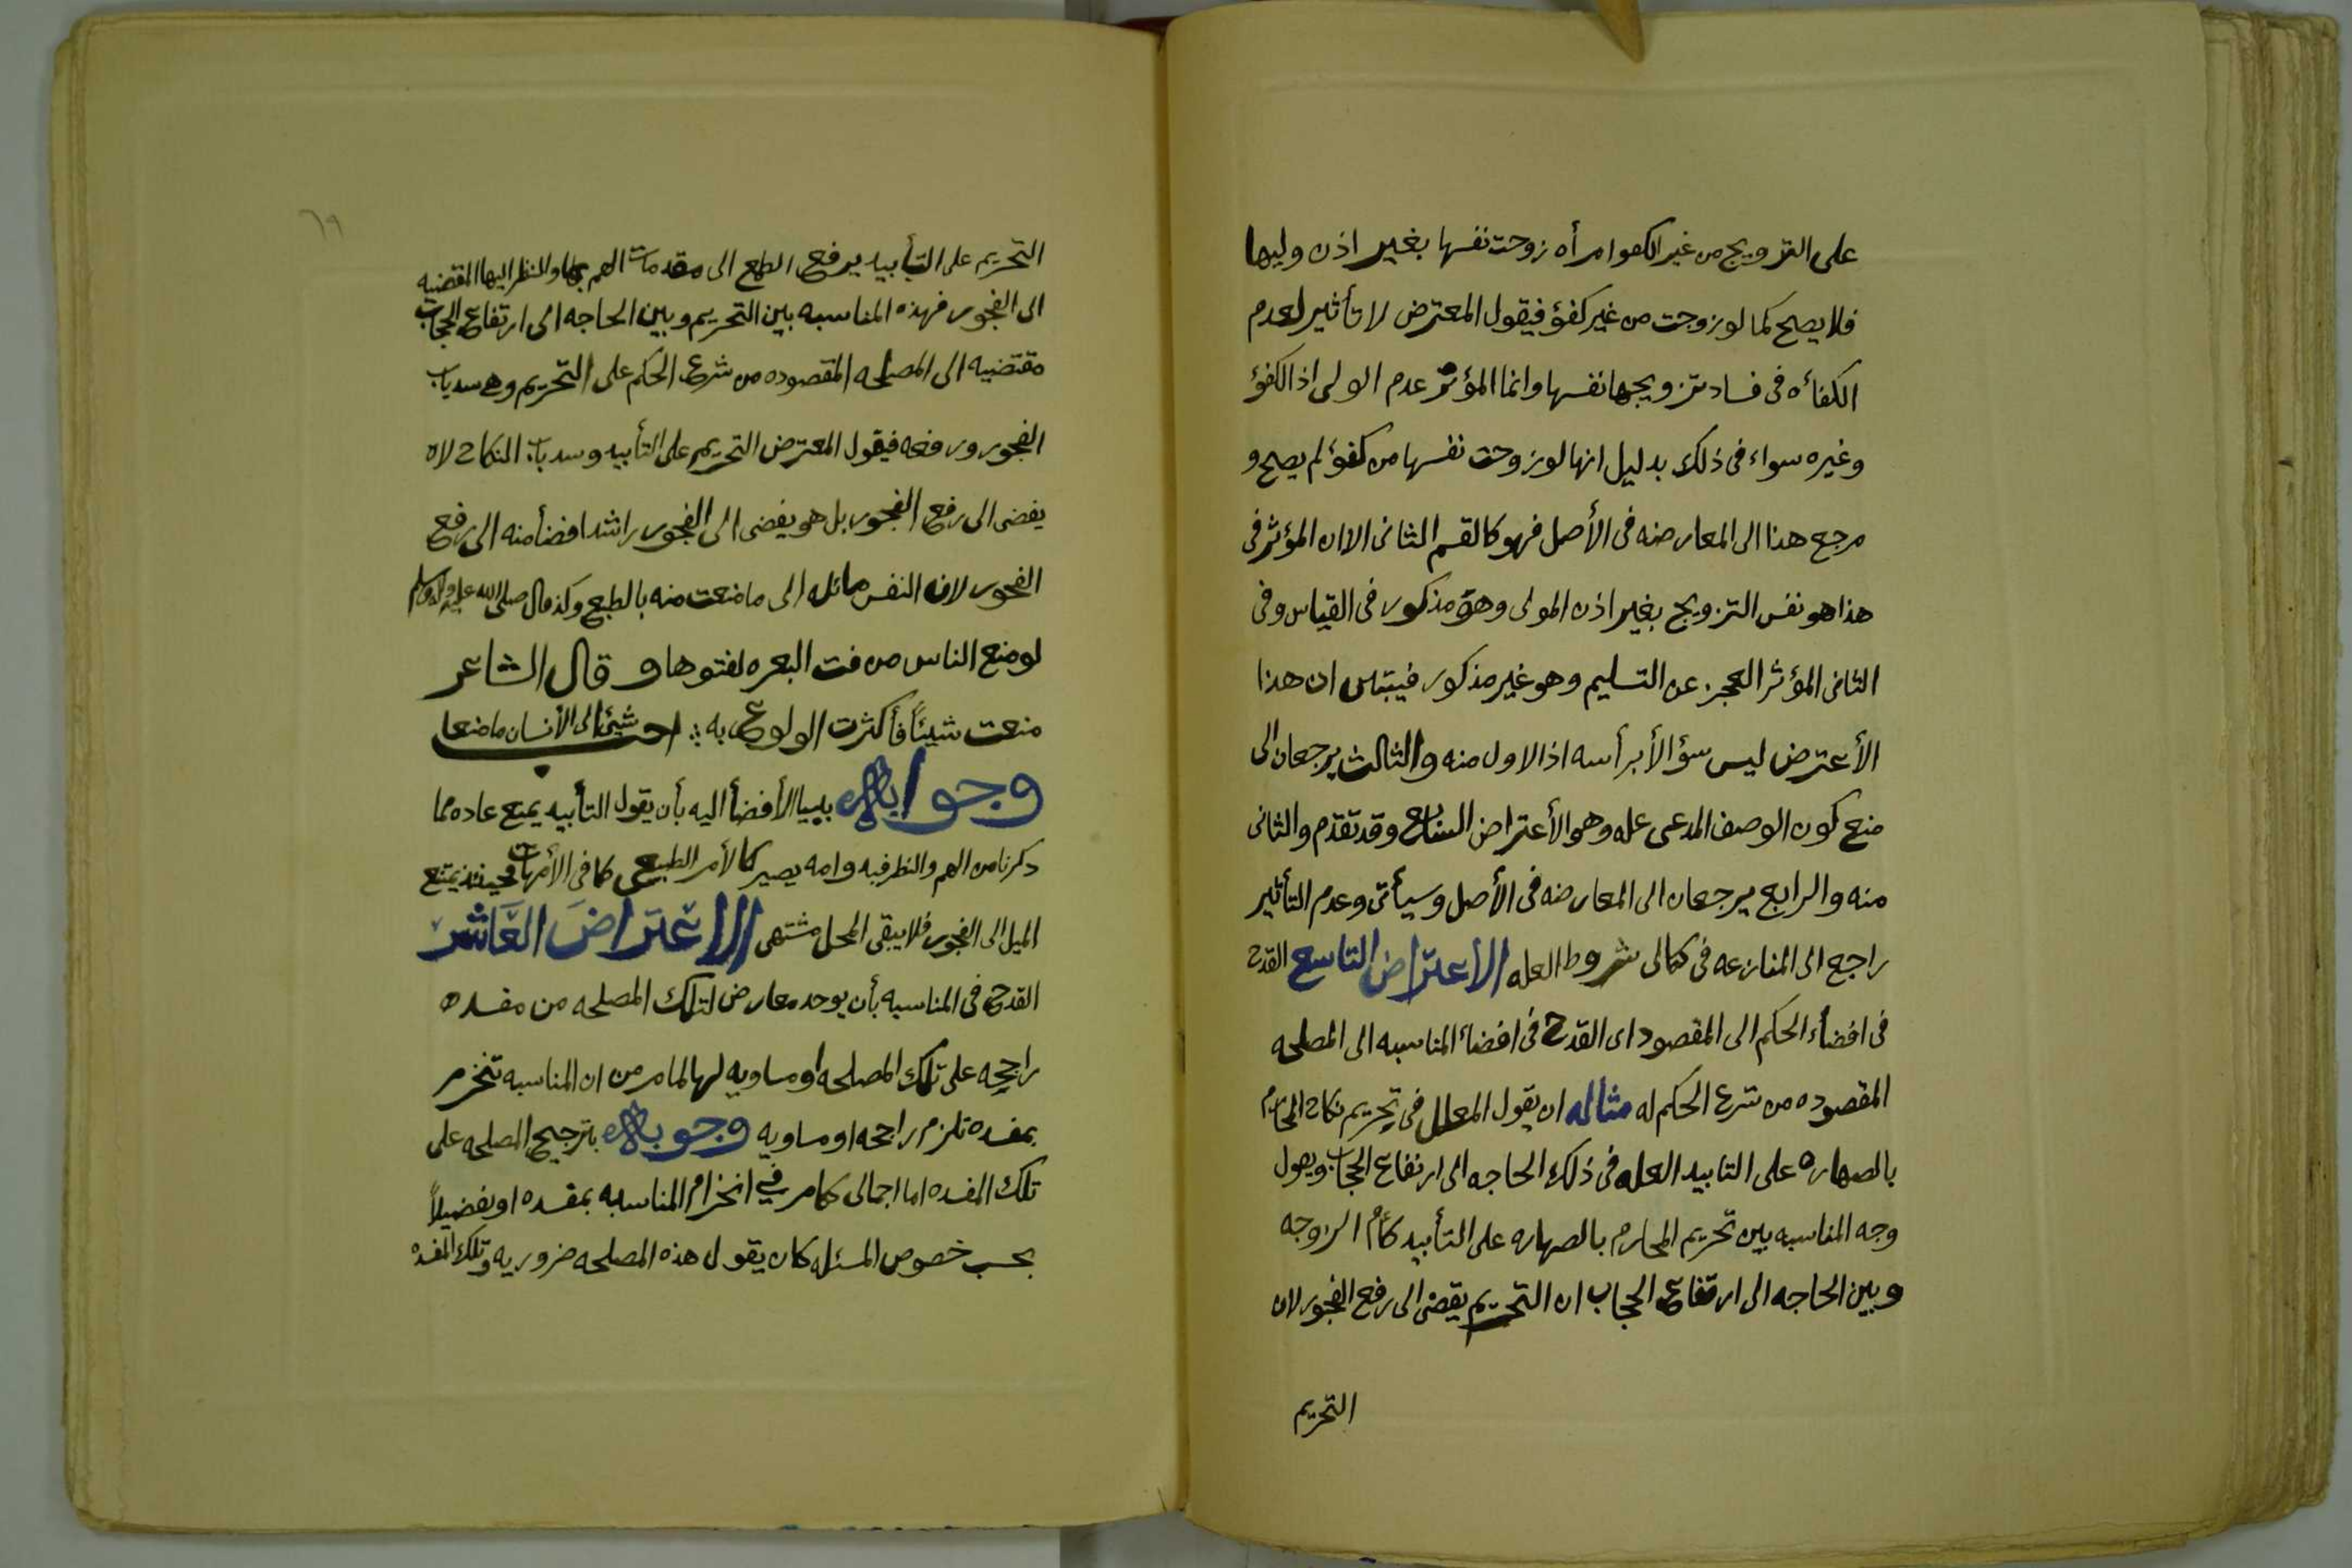 على التزويج من غير الكفو امرأه زوجت نفسها بغير اذن وليها
فلا يصح كما لو زوجت من غير كفؤ فيقول المعترض لا تأثير لعدم
الكفأه فى فساد تزويجها نفسها وانما المؤثر عدم الولى اذ الكفؤ
وغيره سواء فى ذلك بدليل انها لو زوجت نفسها من كفؤ لم يصح و
مرجع هذا الى المعارضه فى الأصل فهو كالقسم الثانى الا ان المؤثر فى
هذا هو نفس التزويج بغير اذن المولى وهو مذكور فى القياس وفى
الثانى المؤثر العجز عن التسليم وهو غير مذكور ان هذا
الأعترض ليس سؤالأ برأسه اذ الاول منه والثالث يرجعان الى
منع كون الوصف المدعى عله وهو الأعتراض السابع وقد تقدم والثانى
منه والرابع يرجعان الى المعارضه فى الأصل وسيأتى وعدم التأثير
راجع الى المنازعه فى كمالى شروط العله الأعتراض التاسع القدح
فى افضاء الحكم الى المقصود اى القدح فى افضاء المناسبه الى المصلحه
المقصوده من شرع الحكم له مثاله ان يقول المعلل فى تحريم نكاح المحارم
بالصهاره على التابيد العله فى ذلك الحاجه الى ارتفاع الحجاب ويقول
وجه المناسبه بين تحريم المحارم بالصهاره على التأبيد كأم الزوجه
وبين الحاجه الى ارتفاع الحجاب ان التحريم يقضى الى رفع الفجور لان
التحريم
٦٩
التحريم على التأبيد يرفع الطمع الى مقدمات الهم بها والنظر اليها المقضيه
الى الفجور فهذه المناسبه بين التحريم وبين الحاجه الى ارتفاع الحجاب
مقتضيه الى المصلحه المقصوده من شرع الحكم على التحريم وهى سد باب
الفجور ورفعه فيقول المعترض التحريم على التأبيد وسد باب النكاح لاه
يفضى الى رفع الفجور بل هو يفضى الى الفجور اشد افضأ منه الى رفع
الفجور لان النفس مائله الى ما منعت منه بالطبع وكذ قال صلى الله عليه وآله وسلم
لو منع الناس من فت البعره لفتوها وقال الشاعر
منعت شيئاً فأكثرت الولوع به ∴ احب شيئ الى الأنسان ما منعا
وجوابه ببيان الأفضأ اليه بأن يقول التأبيد يمنع عاده مما
ذكرنا من الهم والنظر فيه وامه يصير كالأمر الطبيعى كما فى الأمهات وحينئذ يمتنع
الميل الى الفجور فلا يبقى المحل مشتهى الاعتراض العاشر
القدح فى المناسبه بأن يوجد معارض لتلك المصلحه من مفسده
راجحه على تلك المصلحه او مساويه لها لما مر من ان المناسبه تنخرم
بمفسده تلزم راجحه او مساويه وجوبه بترجيح المصلحه على
تلك المفسده اما اجمالى كما مر فى انخزام المناسبه بمفسده او تفضيلاً
بحسب خصوص المسئله كان يقول هذه المصلحه ضروريه وتلك المفسده